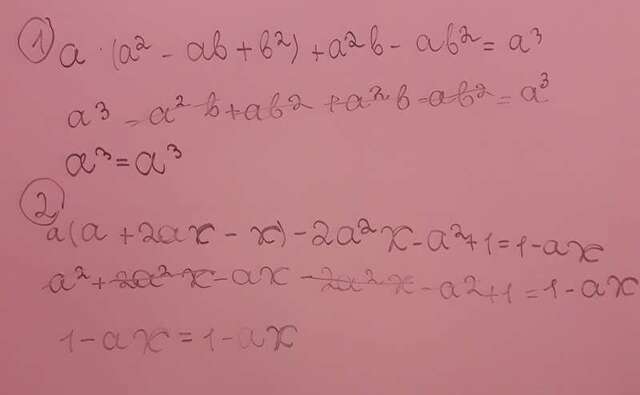 1) a · (a² - ab + b²) + a²b - ab² = a³
a³ - a²b + ab² + a²b - ab² = a³
a³ = a³
2
a(a + 2ax - x) - 2a²x - a² + 1 = 1 - ax
a² + 2a²x - ax - 2a²x - a² + 1 = 1 - ax
1 - ax = 1 - ax